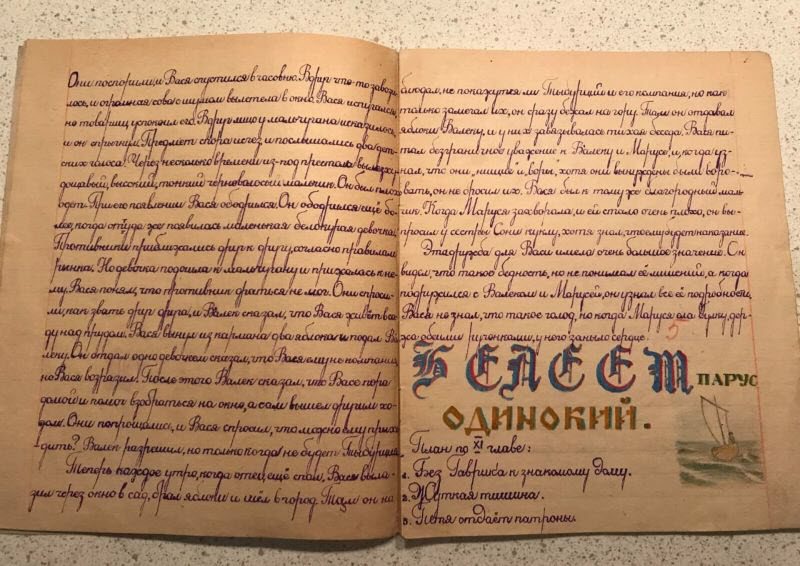 Они поспорили, и Вася спустился в часовню. Вдруг что-то завози-
лось, и огромная сова с шумом вылетела в окно. Вася испугался,
но товарищ успокоил его. Вдруг лицо у мальчугана исказилось,
и он спрыгнул. Предмет скоро исчез, и послышались два дет-
ских голоса. Через несколько времени из-под престола вылез худо-
щавый, высокий, тонкий черноволосый мальчик. Он был плохо
одет. При его появлении Вася ободрился. Он ободрился ещё бо-
лее, когда оттуда же появилась маленькая белокурая девочка.
Противники приближались друг к другу, согласно правилам
рынка. Но девочка подошла к мальчугану и прижалась к не-
му. Вася понял, что противник драться не мог. Они спроси-
ли, как звать друг друга, и Валек сказал, что Вася живёт в са-
ду над прудом. Вася вынул из кармана два яблока и подал Ва-
леку. Он отдал одно девочке и сказал, что Вася ему не компания,
но Вася возразил. После этого Валек сказал, что Васе пора
домой и помог взобраться на окно, а сам вышел другим хо-
дом. Они попрощались, и Вася спросил, что можно ему прихо-
дить? Валек разрешил, но только когда не будет Тыбурция.
Теперь каждое утро, когда отец ещё спал, Вася выла-
зил через окно в сад, брал яблоки и шёл в город. Там он на-
блюдал, не покажутся ли Тыбурций и его компания, но как
только замечал их, он сразу бежал на гору. Там он отдавал
яблоки Валеку, и у них завязывалась тихая беседа. Вася пи-
тал безграничное уважение к Валеку и Марусе, и, когда уз-
нал, что они „нищие" и „воры", хотя они вынуждены были воро-
вать, он не бросил их. Вася был к тому же благородный маль-
чик. Когда Маруся захворала, и ей стало очень плохо, он вы-
просил у сестры Сони куклу, хотя знал, что ему будет наказание.
Эта дружба для Васи имела очень большое значение. Он
видал, что такое бедность, но не понимал её лишений, а когда
подружился с Валеком и Марусей, он узнал все её подробности.
Вася не знал, что такое голод, но когда Маруся ела булку, дер-
жа обеими ручонками, у него заныло сердце.
5
БЕЛЕЕТ ПАРУС
ОДИНОКИЙ.
План по XI главе:
1. Без Гаврика к знакомому дому.
2. Жуткая тишина.
3. Петя отдаёт патроны.